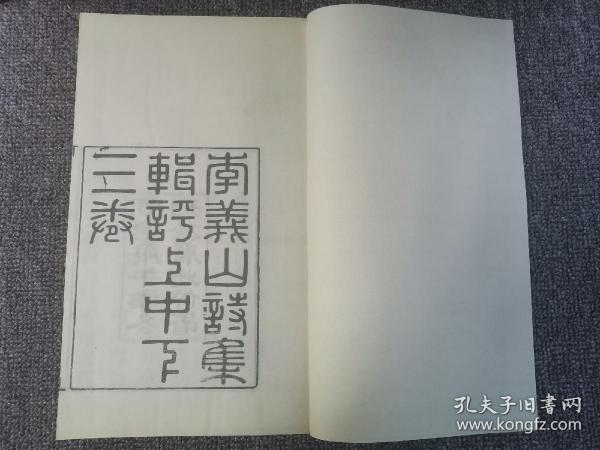 李義山詩集
輯評上中下
三卷
孔夫子旧书网
www.kongfz.com